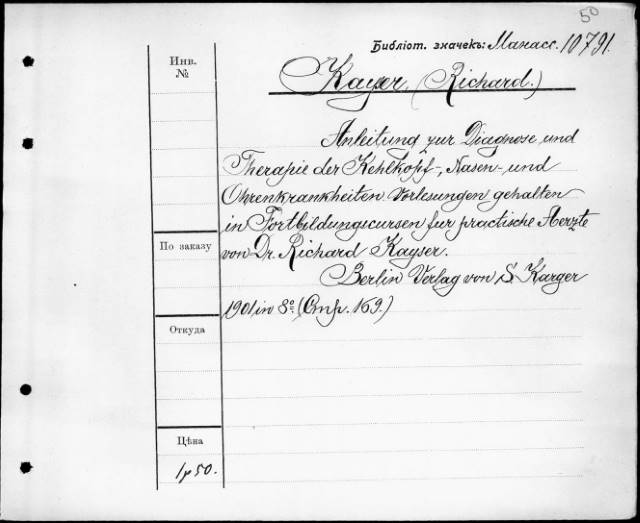 50
Библіот. значекъ: Манасс. 10791.
Инв.
№
Kayser, (Richard.)
Anleitung zur Diagnose und
Therapie der Kehlkopf-, Nasen- und
Ohrenkrankheiten. Vorlesungen gehalten
in Fortbildungscursen fur practische Aerzte
По заказу
von Dr. Richard Kayser.
Berlin Verlag von S. Karger
1901 in 8º. (Стр. 169.)
Откуда
Цѣна
1 р 50.